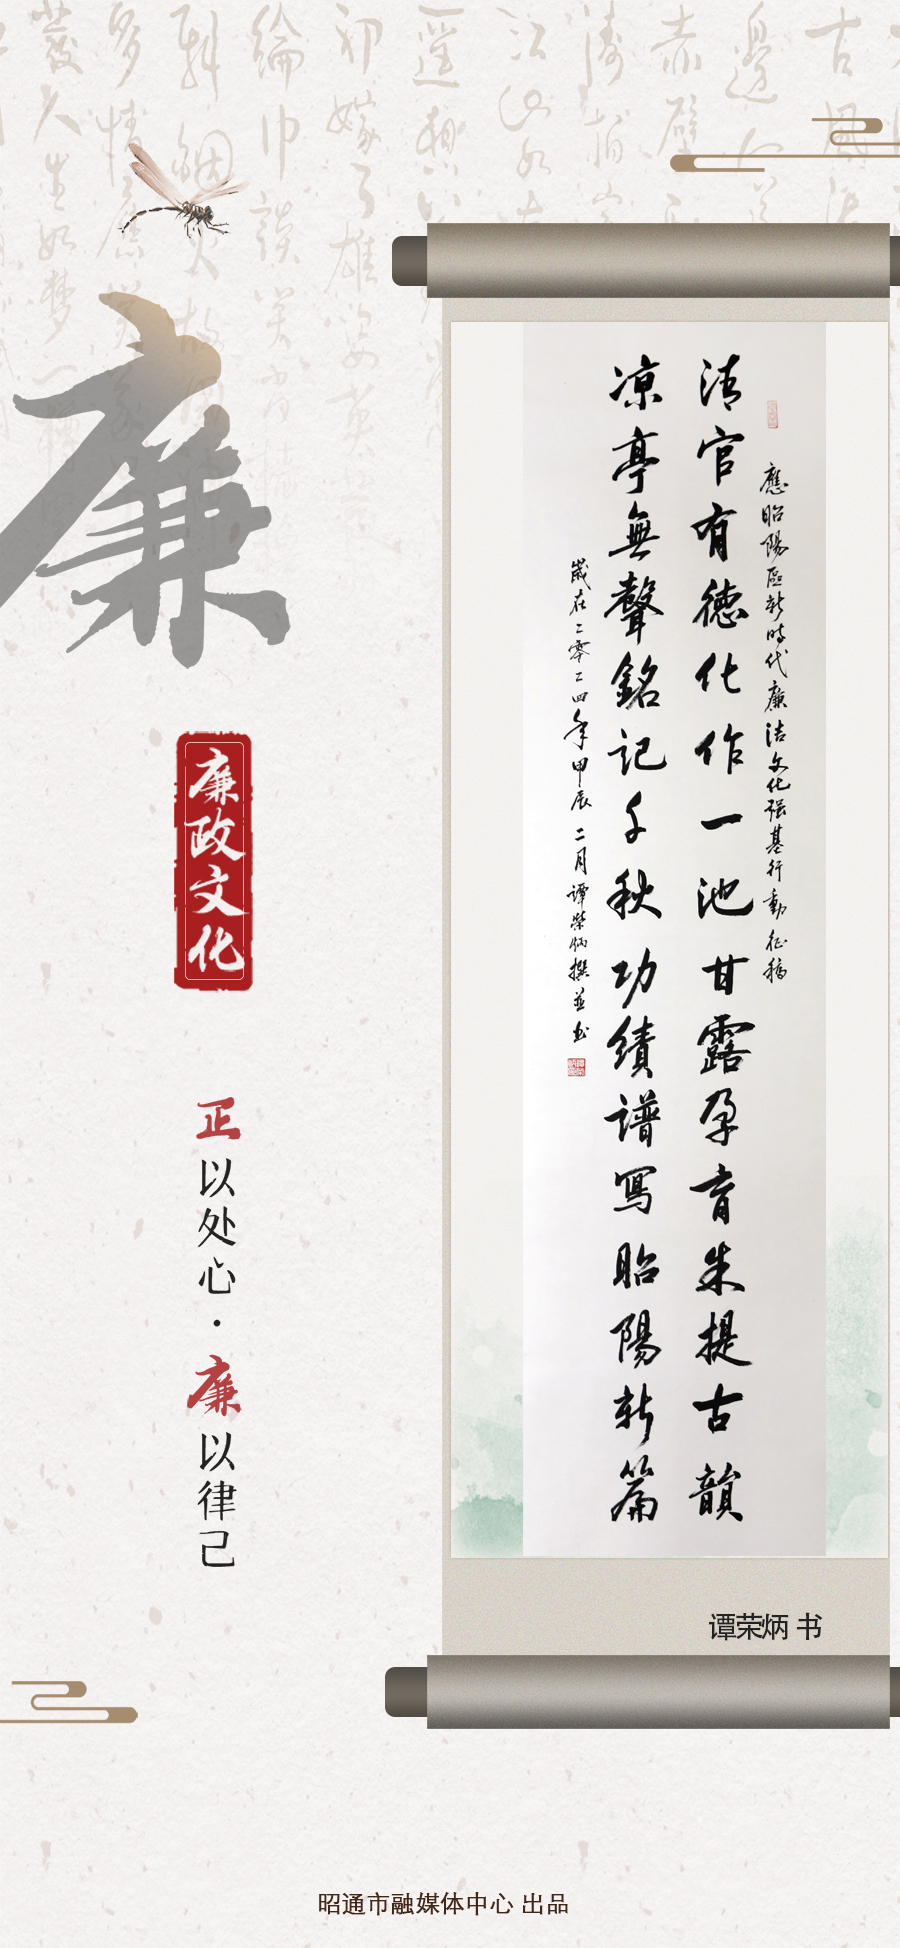 廉
廉政文化
正以处心·廉以律己
應昭陽區新時代廉洁文化强基行動征稿
清官有德化作一池甘露孕育朱提古韻
凉亭無聲銘記千秋功績譜寫昭陽新篇
歲在二零二四年甲辰二月譚榮炳撰並书
谭荣炳 书
昭通市融媒体中心 出品